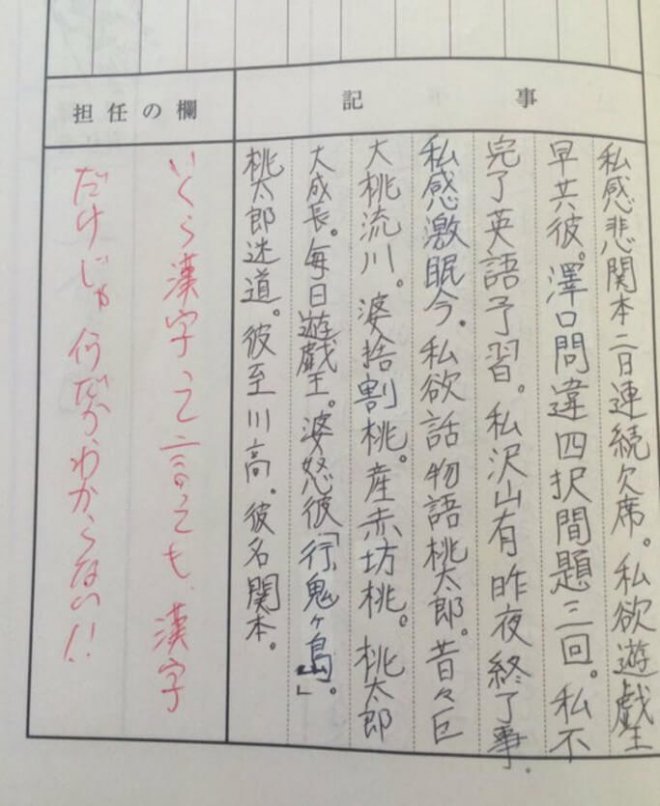 記事
私感悲関本二日連続欠席。私欲遊戯王
早共彼。澤口問違四択問題三回。私不
完了英語予習。私沢山有昨夜終了事。
私感激眠今。私欲話物語桃太郎。昔々巨
大桃流川。婆捨割桃。産赤坊桃。桃太郎
大成長。毎日遊戯王。婆怒彼「行鬼ヶ島」。
桃太郎迷道。彼至川高。彼名関本。
担任の欄
いくら漢字って言っても、漢字
だけじゃ何だかわからない!!